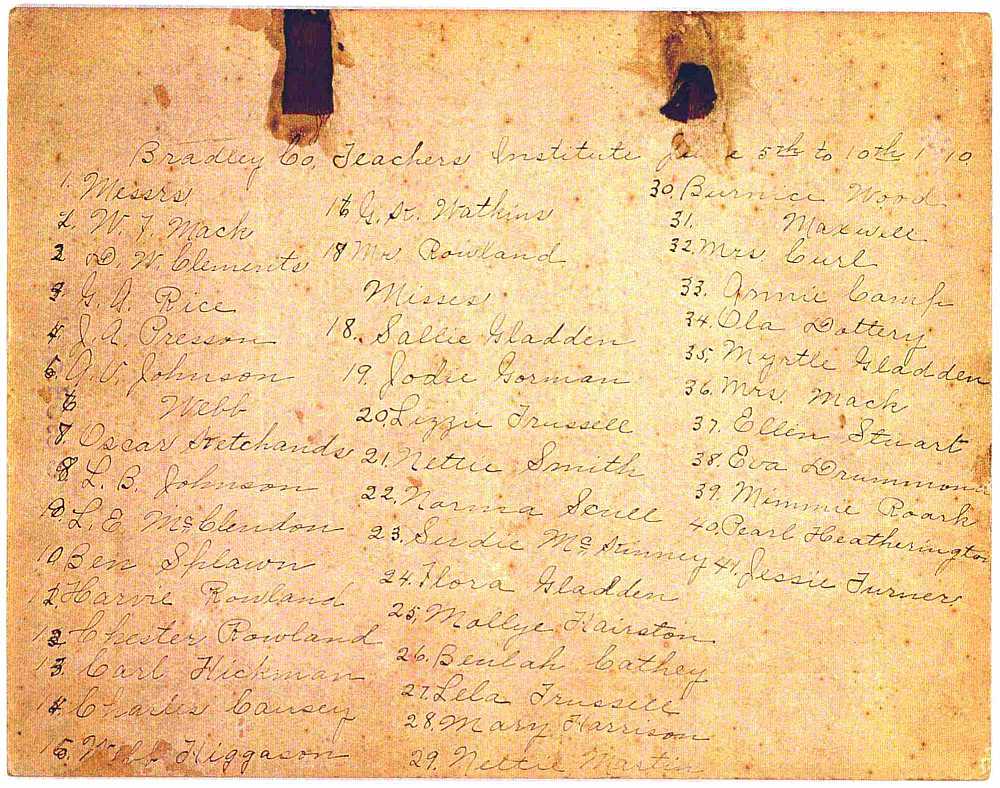 Bradley Co. Teachers Institute 5th to 10th
1. Messrs
2. W. J. Mack
D. W. Clements
G. A. Rice
J. A. Presson
A. V. Johnson
6 Webb
Oscar Ketchands
8 L. B. Johnson
L. E. McClendon
10 Ben Splawn
12 Harvie Rowland
Chester Rowland
13. Carl Hickman
14. Charlie Causey
15. Webb Higgason
16 G. W. Watkins
18 Mr Rowland
Misses
18. Sallie Gladden
19. Jodie Gorman
20. Lizzie Trussell
21. Nettie Smith
22. Norma Scull
23. Surdie McKinney
24. Flora Gladden
25. Mollye Hairston
26. Beulah Cathey
27. Lela Trussell
28. Mary Harrison
29. Nettie Martin
30. Burnice Wood
31. Maxwell
32. Mrs Curl
33. Annie Camp
34. Ola Dottery
35. Myrtle Gladden
36. Mrs. Mack
37. Ellen Stuart
38. Eva Drummond
39. Mimmie Roark
40. Pearl Heatherington
41. Jessie Turner